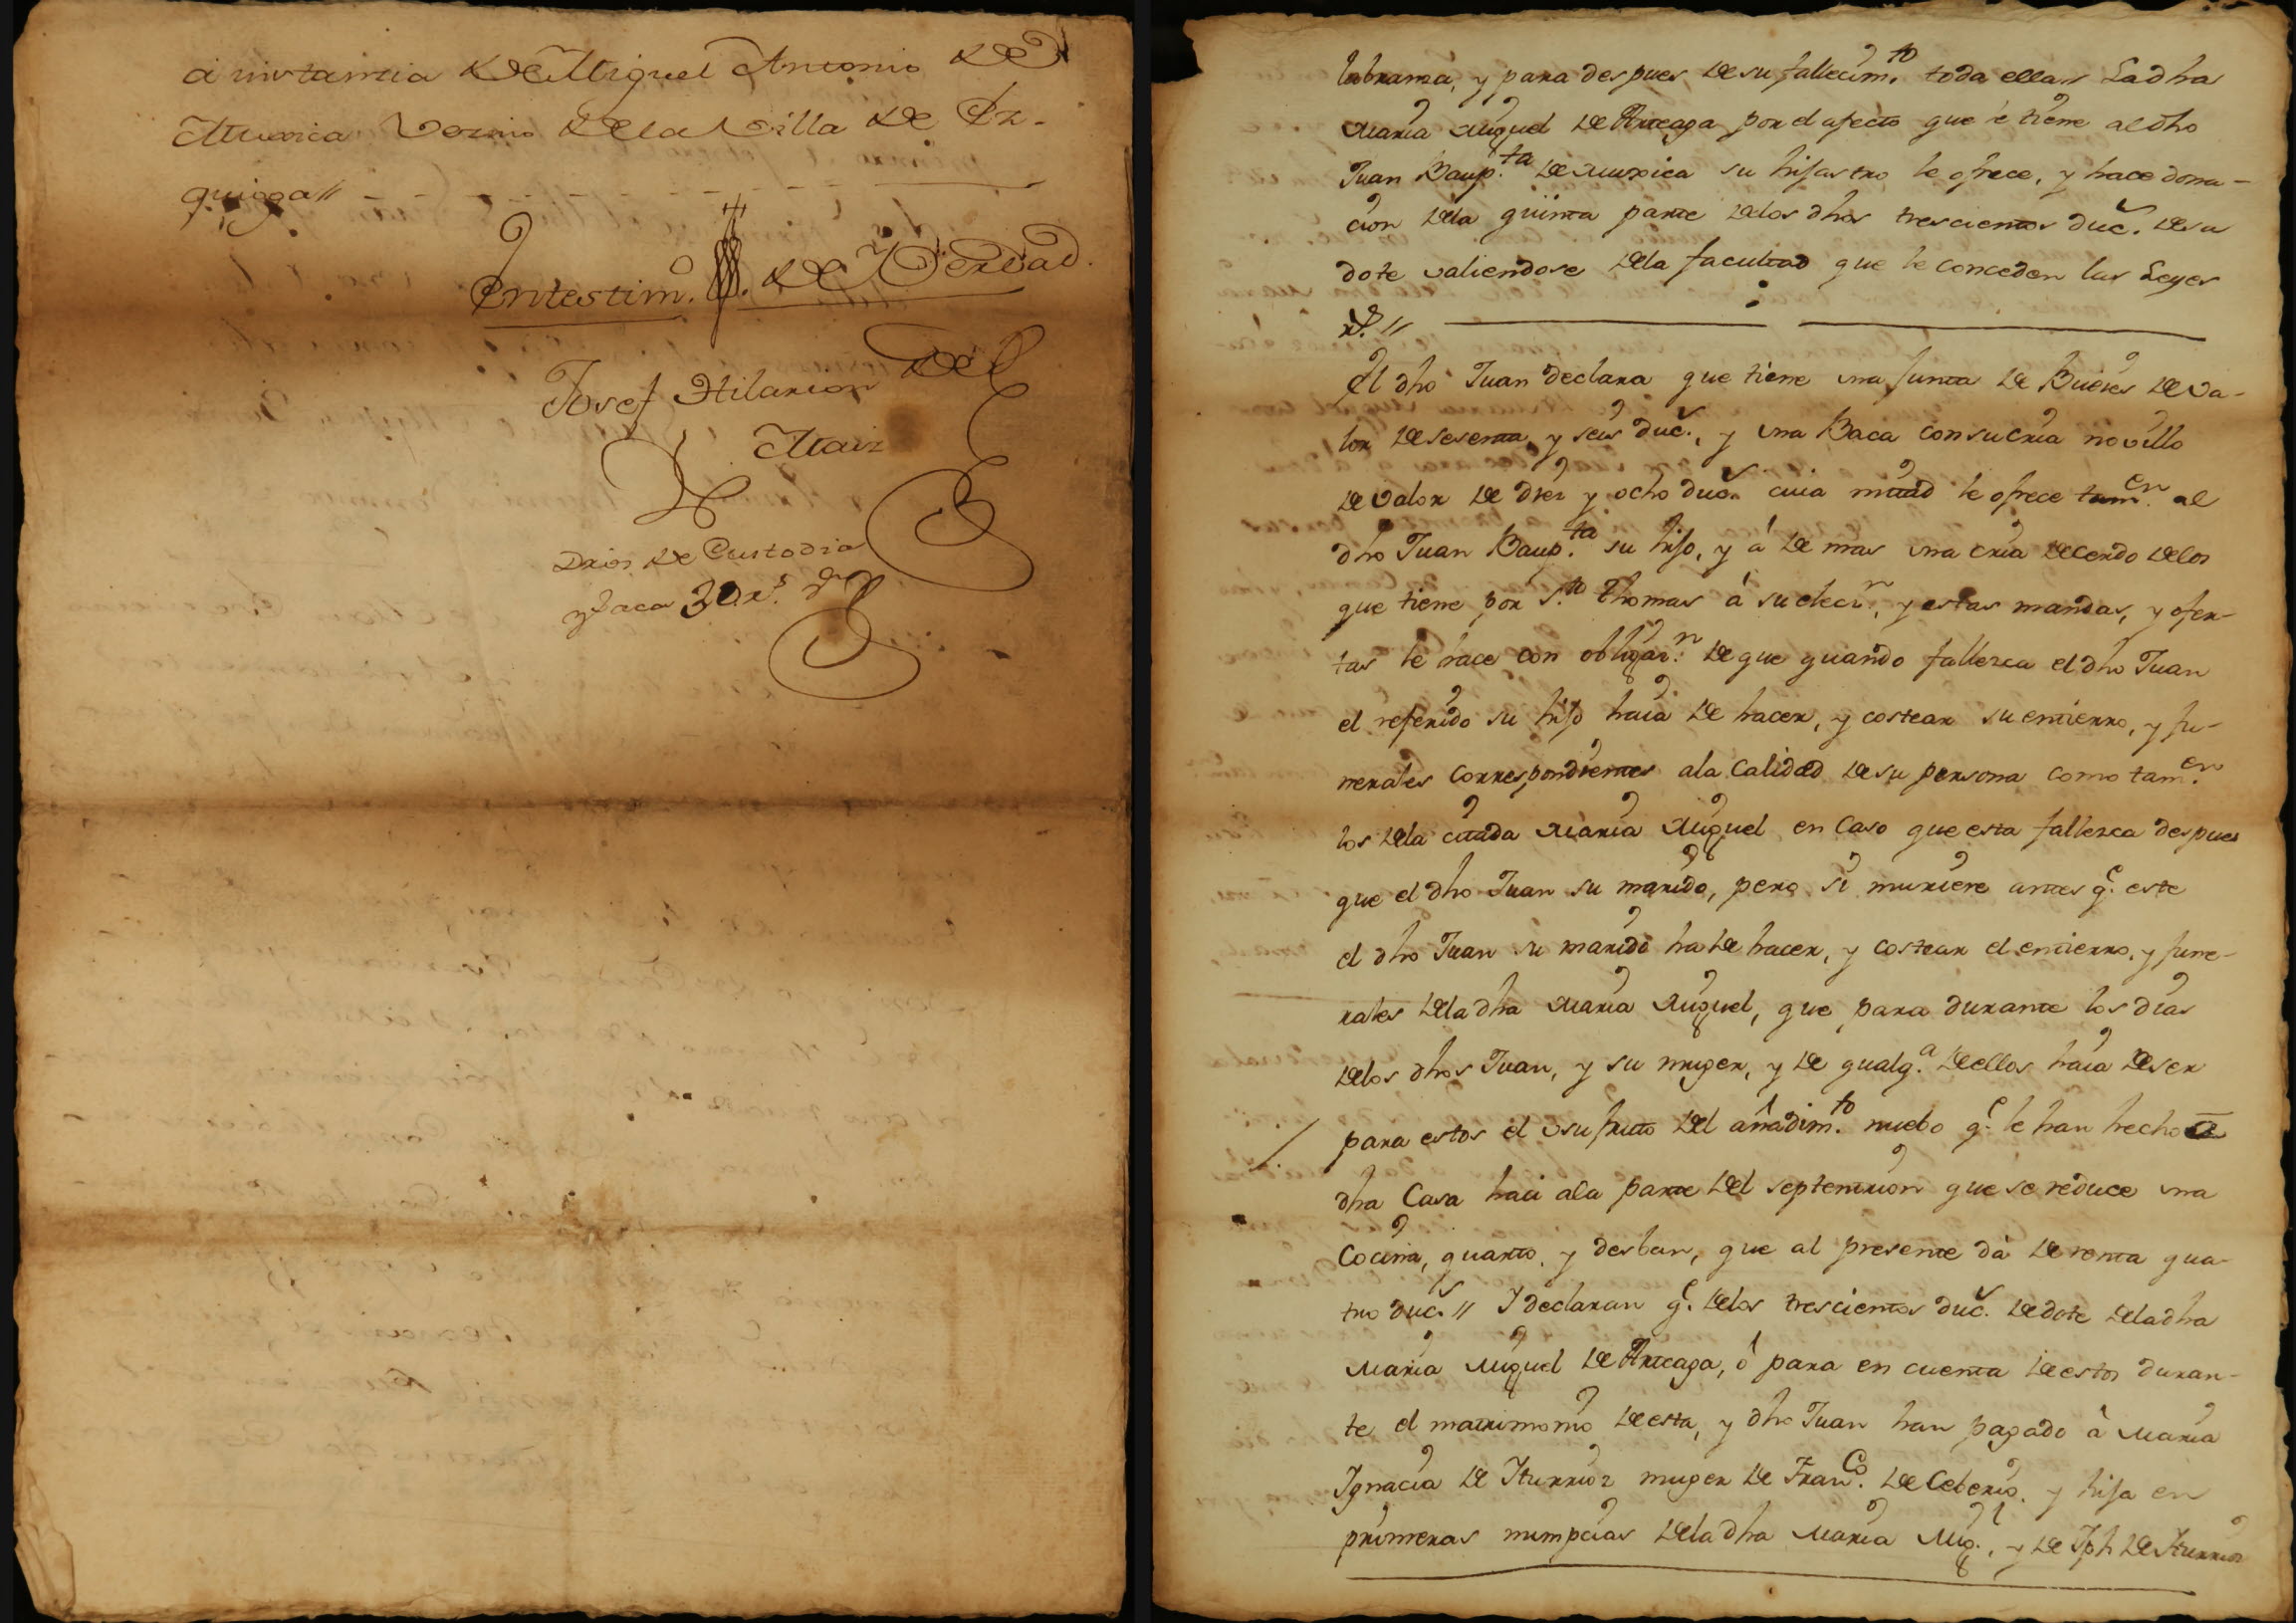 á instancia de Miguel Antonio de
Muxica Vecino de la Villa de Ez-
quioga //
En testim.o de Verdad.
Josef Hilarion de
Maiz
Dr̃os de Custodia
y saca 30 r.s
labranza, y para despues de su fallecim.to toda ella // La dha
Maria Miguel de Arteaga por el afecto que le tiene al dho
Juan Baup.ta de Muxica su hijastro le ofrece, y hace dona-
cion de la quinta parte de los dhos trescientos duc.s de su
dote valiendose de la facultad que le conceden las Leyes
r.s //
El dho Juan declara que tiene una junta de Bueies de va-
lor de sesenta y seis duc.s, y una Baca con su cria novillo
de valor de diez y ocho duc.s cuia mitad le ofrece tam.en al
dho Juan Baup.ta su hijo, y á de mas una cria de cerdo de los
que tiene por S.to Thomas á su elecc.n, y estas mandas, y ofer-
tas le hace con obligaz.n de que quando fallezca el dho Juan
el referido su hijo haia de hacer, y costear su entierro, y fu-
nerales correspondientes a la calidad de su persona como tam.en
los de la citada Maria Miguel en caso que esta fallezca despues
que el dho Juan su marido, pero si muriere antes q.e este
el dho Juan su marido ha de hacer, y costear el entierro, y fune-
rales de la dha Maria Miguel, que para durante los dias
de los dhos Juan, y su muger, y de qualq.a de ellos haia de ser
para estos el usufruto del añadim.to nuebo q.e le han hecho a
dha Casa haci a la parte del septentrion que se reduce una
Cocina, quarto, y desban, que al presente dá de renta qua-
tro duc.s // Y declaran q.e de los trescientos duc.s de dote de la dha
Maria Miguel de Arteaga, ó para en cuenta de estos duran-
te el matrimonio de esta, y dho Juan han pagado á Maria
Ignacia de Iturrioz muger de Fran.co de Ceberio, y hija en
primeras numpcias de la dha Maria Mig.l, y de Jph de Iturrioz